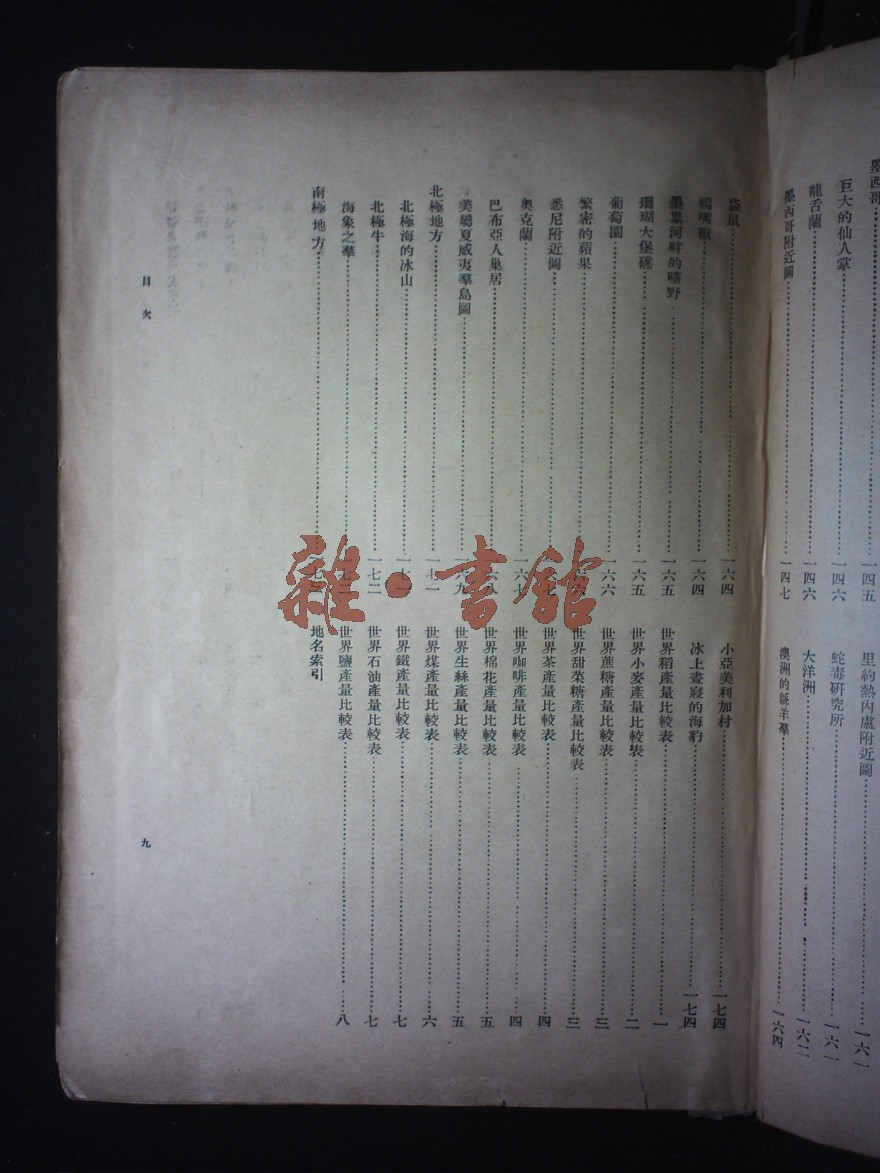 墨西哥……一四五
巨大的仙人掌……一四六
龍舌蘭……一四六
墨西哥附近圖……一四七
里約熱內盧附近圖……一六一
蛇毒研究所……一六一
大洋洲……一六二
澳洲的緜羊羣……一六四
袋鼠……一六四
鴨嘴獸……一六四
墨累河畔的曠野……一六五
珊瑚大堡礁……一六五
葡萄園……一六六
繁密的蘋果……
悉尼附近圖……
奧克蘭……一六七
巴布亞人巢居……
美屬夏威夷羣島圖……一六九
北極地方……一七一
北極海的冰山……一七一
北極牛……一七二
海象之羣……
南極地方……
小亞美利加村……一七四
冰上晝寢的海豹……一七四
世界稻產量比較表……一
世界小麥產量比較表……二
世界蔗糖產量比較表……三
世界甜菜糖產量比較表……三
世界茶產量比較表……四
世界咖啡產量比較表……四
世界棉花產量比較表……五
世界生絲產量比較表……五
世界煤產量比較表……六
世界鐵產量比較表……七
世界石油產量比較表……七
世界鹽產量比較表……八
地名索引
目次
九
雜·書館